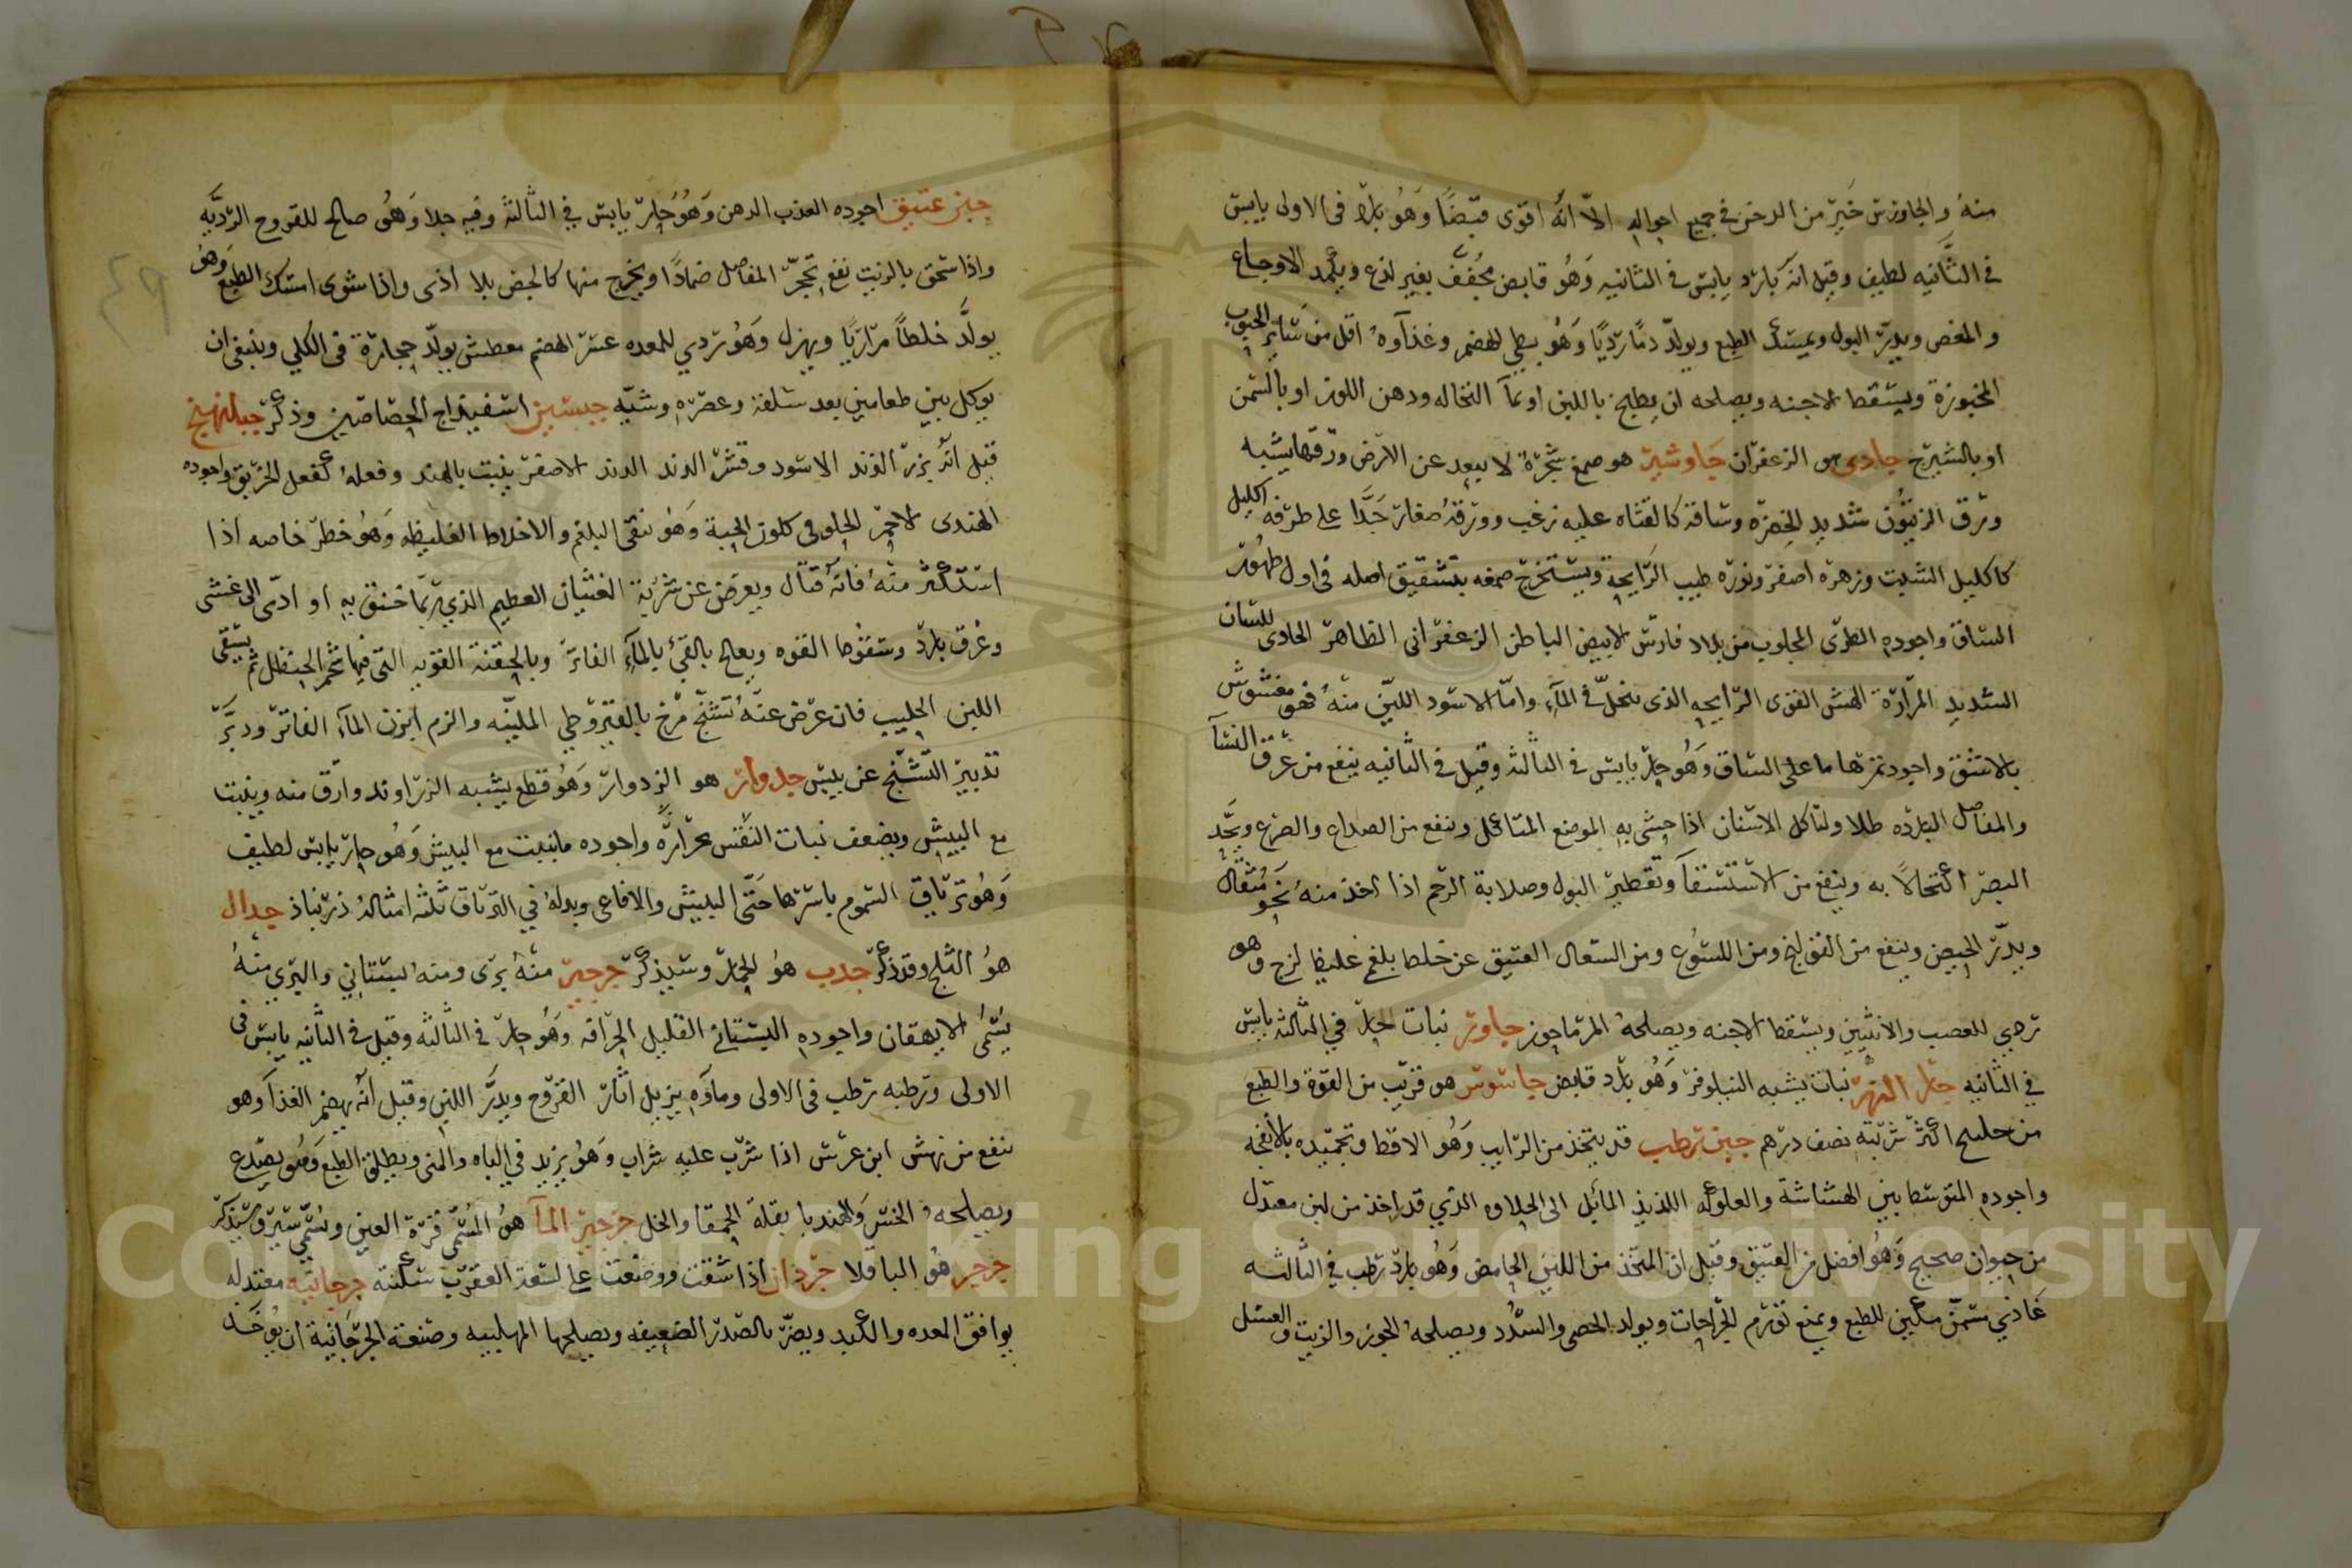 منه والجاورس خير من الدخن في جميع احواله الا انه اقوى قبضا وهو بارد فى الاولى يابس
فى الثانيه لطيف وقيل انه بارد يابس فى الثانيه وهو قابض مجفف بغير لذع ويكمد الاوجاع
والمغص ويدر البول ويمسك الطبع ويولد دما رديا وهو بطي الهضم وغذآوه اقل من سائر الحبوب
المخبوزة ويسقط الاجنه ويصلحه ان يطبخ باللبن او بمآ النخاله ودهن اللوز او بالسمن
او بالشيرج جادى هو الزعفران جاوشير هو صمغ شجرة لا يبعد عن الارض ورقها يشبه
ورق الزيتون شديد الخضره وساقه كالقثاه عليه زغب وورقه صغار جدا على طرفه اكليل
كاكليل الشبت وزهره اصفر ونوره طيب الرايحة ويستخرج صمغه بتشقيق اصله فى اول ظهور
الساق واجوده الطرى المجلوب من بلاد فارس الابيض الباطن الزعفرانى الظاهر الحادى للسان
الشديد المرارة الهش القوى الرايحه الذى ينحل فى المآء واما الاسود اللين منه فهو مغشوش
بالاشق واجود ثمرها ما على الساق وهو حار يابس فى الثالثه وقيل فى الثانيه ينفع من عرق النسآ
والمفاصل البارده طلا ولتاكل الاسنان اذا حشى به الموضع المتاكل وينفع من الصداع والصرع ويحد
البصر اكتحالا به وينفع من الاستسقآ وتقطير البول وصلابة الرحم اذا اخذ منه نحو مثقال
ويدر الحيض وينفع من القولنج ومن اللسوع ومن السعال العتيق عن خلط بلغم غليظ لزج وهو
ردي للعصب والانثيين ويسقط الاجنه ويصلحه المرماحوز جاور نبات حار في الثالثه يابس
في الثانيه جار النهر نبات يشبه النيلوفر وهو بارد قابض جاسوس هو قريب من القوة والطبع
من اكثر شربته نصف درهم جبن رطب قد يتخذ من الرايب وهو الاقط وتجميده بالانفحه
واجوده المتوسط بين الهشاشة والعلوكه اللذيذ المائل الى الحلاوه الذي قد اخذ من لبن معتدل
من حيوان صحيح وهو افضل من العتيق وقيل ان المتخذ من اللبن الحامض وهو بارد رطب في الثالثه
غاذي مسمن ملين للطبع ويمنع تورم الجراحات ويولد الحصى والسدد ويصلحه الجوز والزيت والعسل
جبن عتيق اجوده العذب الدهن وهو حار يابس في الثالثة وفيه جلا وهو صالح للقروح الرديه
واذا سحق بالزيت نفع تحجر المفاصل ضمادا ويخرج منها كالجص بلا اذى واذا شوى امسك الطبع وهو
يولد خلطا مراريا ويهزل وهو ردي للمعده عسر الهضم معطش يولد حجارة فى الكلي وينبغى ان
يوكل بين طعامين بعد سلقه وعصره وشيه جبسين اسفيداج الجصاصين وذكر جبلهنج
قيل انه بزر الدند الاسود وقشر الدند الدند الاصفر ينبت بالهند وفعله كفعل الخربق واجوده
الهندى الاحمر الحلو فى كلون الحبة وهو ينقى البلغم والاخلاط الغليظه وهو خطر خاصه اذا
استكثر منه فانه قتال ويعرض عن شربه الغثيان العظيم الذي ربما خنق به او ادى الى غشى
وعرق بارد وسقوط القوه ويعالج بالقيء بالمآء الفاتر وبالحقنة القويه التى فيها شحم الحنظل ثم يسقى
اللبن الحليب فان عرض عنه تشنج مرخ بالقيروطي الملينه والزم ابزن المآء الفاتر ودبر
تدبير التشنج عن يبس جدوار هو الزدوار وهو قطع يشبه الزراوند وارق منه وينبت
مع البيش ويضعف نبات البيش بحرارة واجوده ماينبت مع البيش وهو حار يابس لطيف
وهو ترياق السموم باسرها حتى البيش والافاعى وبدله في الترياق ثلثه امثاله زرنباذ جدال
هو الثلج وقد ذكر جدب هو الجمار وسيذكر جرجير منه برى ومنه بستاني والبري منه
يسمى الايهقان واجوده البستاني القليل الحرافه وهو حار في الثالثه وقيل فى الثانيه يابس فى
الاولى ورطبه رطب فى الاولى ومآوه يزيل اثار القروح ويدر اللبن وقيل انه يهضم الغذآ وهو
ينفع من نهش ابن عرس اذا شرب عليه شراب وهو يزيد في الباه والمنى ويطلق الطبع وهو يصدع
ويصلحه الخس والهندبا بقلة الحمقا والخل جرجير المآ هو المسمى قرة العين ويسمى سير وسيذكر
جرجر هو الباقلا جرذان اذا شقت ووضعت على لسعة العقرب سكنته جرجانيه معتدله
يوافق المعده والكبد ويضر بالصدر الضعيفه ويصلحها المهلبيه وصنعة الجرجانية ان يوخذ